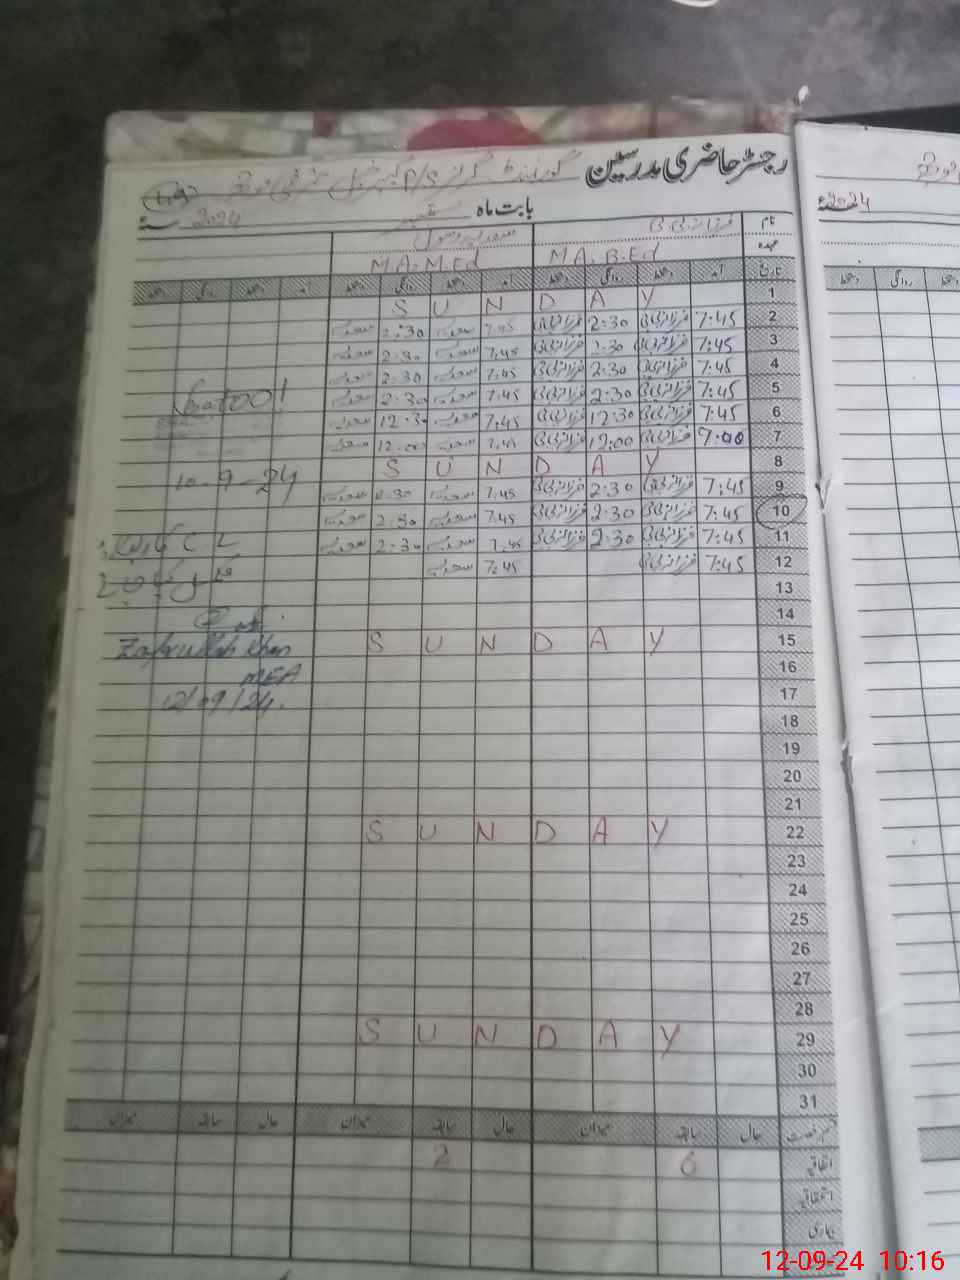 رجسٹر حاضری مدرسین گورنمنٹ گرلز P/S
بابت ماہ ستمبر 2024 سنہء
نام فرزانہ بی بی سعدیہ رسول
عہدہ M.A. B.Ed M.A. M.Ed
تاریخ آمد دستخط روانگی دستخط آمد دستخط روانگی دستخط آمد دستخط روانگی دستخط
1 S U N D A Y
2 7:45 فرزانہ بی بی 2:30 فرزانہ بی بی 7:45 سعدیہ 2:30 سعدیہ
3 7:45 فرزانہ بی بی 2:30 فرزانہ بی بی 7:45 سعدیہ 2:30 سعدیہ
4 7:45 فرزانہ بی بی 2:30 فرزانہ بی بی 7:45 سعدیہ 2:30 سعدیہ
5 7:45 فرزانہ بی بی 2:30 فرزانہ بی بی 7:45 سعدیہ 2:30 سعدیہ
6 7:45 فرزانہ بی بی 12:30 فرزانہ بی بی 7:45 سعدیہ 12:30 سعدیہ
7 فرزانہ بی بی 12:00 فرزانہ بی بی 7:45 سعدیہ 12:00 سعدیہ
8 S U N D A Y
9 7:45 فرزانہ بی بی 2:30 فرزانہ بی بی 7:45 سعدیہ 2:30 سعدیہ
10 7:45 فرزانہ بی بی 2:30 فرزانہ بی بی 7:45 سعدیہ 2:30 سعدیہ
11 7:45 فرزانہ بی بی 2:30 فرزانہ بی بی 7:45 سعدیہ 2:30 سعدیہ
12 7:45 فرزانہ بی بی 7:45 سعدیہ
13
14
15 S U N D A Y
16
17
18
19
20
21
22 S U N D A Y
23
24
25
26
27
28
29 S U N D A Y
30
31
Batool
10-9-24
CL کا ریکارڈ
Zafrullah Khan
MEA
12/09/24.
قسم رخصت حال سابقہ میزان حال سابقہ میزان حال سابقہ میزان
اتفاقیہ 6 2
استحقاقیہ
بیماری
2024 سنہء
دستخط روانگی دستخط
12-09-24 10:16